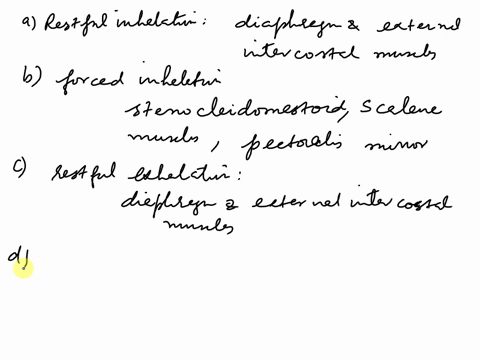 a) Restful inhelation: diaphregm & external
intercostal muscles
b) forced inheletion
stenocleidomestoid, scalene
muscles, pectoralis minor
c) restful exhelation:
diephregm & external intercostal
muscles
d)